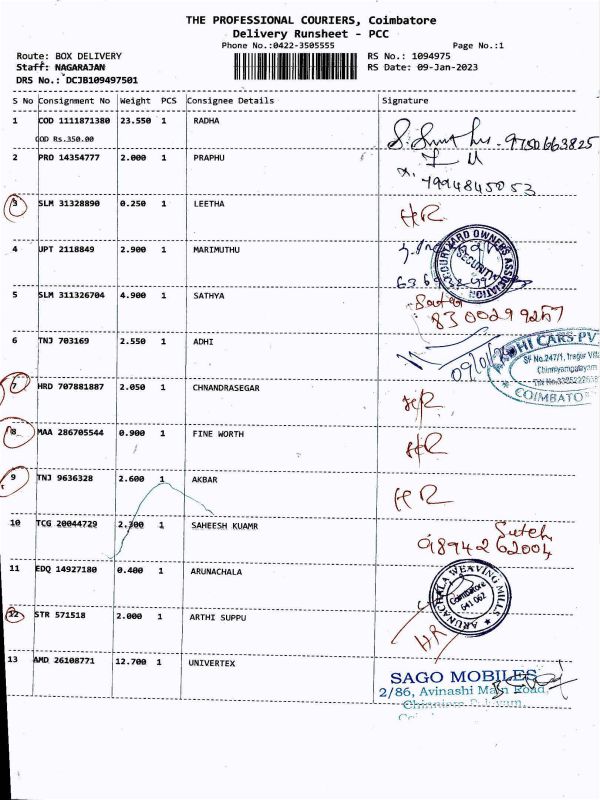 THE PROFESSIONAL COURIERS, Coimbatore
Delivery Runsheet - PCC
Phone No.:0422-3505555 Page No.:1
Route: BOX DELIVERY RS No.: 1094975
Staff: NAGARAJAN RS Date: 09-Jan-2023
DRS No.: DCJB109497501
S No Consignment No Weight PCS Consignee Details Signature
1 COD 1111871380 23.550 1 RADHA
COD Rs.350.00 9750663825
2 PRO 14354777 2.000 1 PRAPHU
7994845053
3 SLM 31328890 0.250 1 LEETHA HR
4 UPT 2118849 2.900 1 MARIMUTHU
COURTYARD OWNERS ASSOCIATION
SECURITY
5 SLM 311326704 4.900 1 SATHYA
8300299267
6 TNJ 703169 2.550 1 ADHI
CARS PV
SF No.247/1,
Chinniyampalayam
COIMBATOR
7 HRD 707881887 2.050 1 CHNANDRASEGAR HR
8 MAA 286705544 0.900 1 FINE WORTH HR
9 TNJ 9636328 2.600 1 AKBAR HR
10 TCG 20044729 2.300 1 SAHEESH KUAMR
9894262004
11 EDQ 14927180 0.400 1 ARUNACHALA
ARUNACHALA WEAVING MILLS
Coimbatore
641 062
12 STR 571518 2.000 1 ARTHI SUPPU HR
13 AMD 26108771 12.700 1 UNIVERTEX
SAGO MOBILES
2/86, Avinashi Main Road,